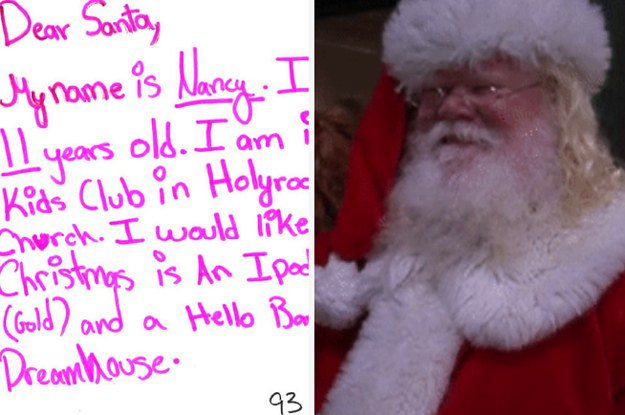 Dear Santa,
My name is Nancy. I
11 years old. I am i
Kids Club in Holyroo
Church. I would like
Christmas is An Ipod
(Gold) and a Hello Ba
Dreamhouse.
93